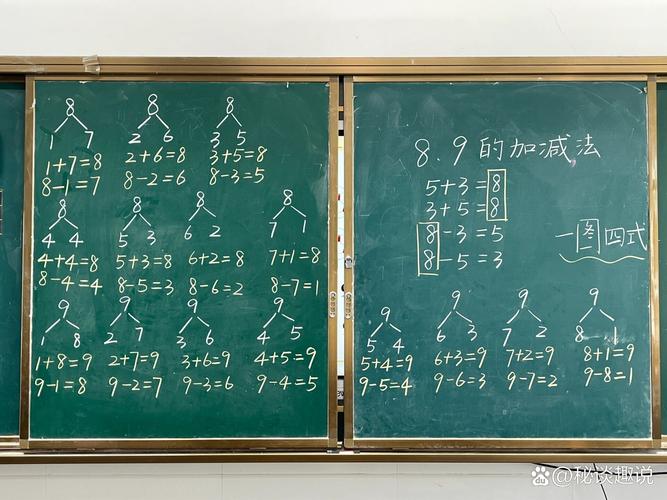 8 8 8
1 7 2 6 3 5
1+7=8 2+6=8 3+5=8
8-1=7 8-2=6 8-3=5
8 8 8 8
4 4 5 3 6 2 7 1
4+4=8 5+3=8 6+2=8 7+1=8
8-4=4 8-5=3 8-6=2 8-7=1
9 9 9 9
1 8 2 7 3 6 4 5
1+8=9 2+7=9 3+6=9 4+5=9
9-1=8 9-2=7 9-3=6 9-4=5
8.9的加减法
5+3=8
3+5=8
8-3=5
8-5=3
一图四式
9 9 9 9
5 4 6 3 7 2 8 1
5+4=9 6+3=9 7+2=9 8+1=9
9-5=4 9-6=3 9-7=2 9-8=1
@秘谈趣说